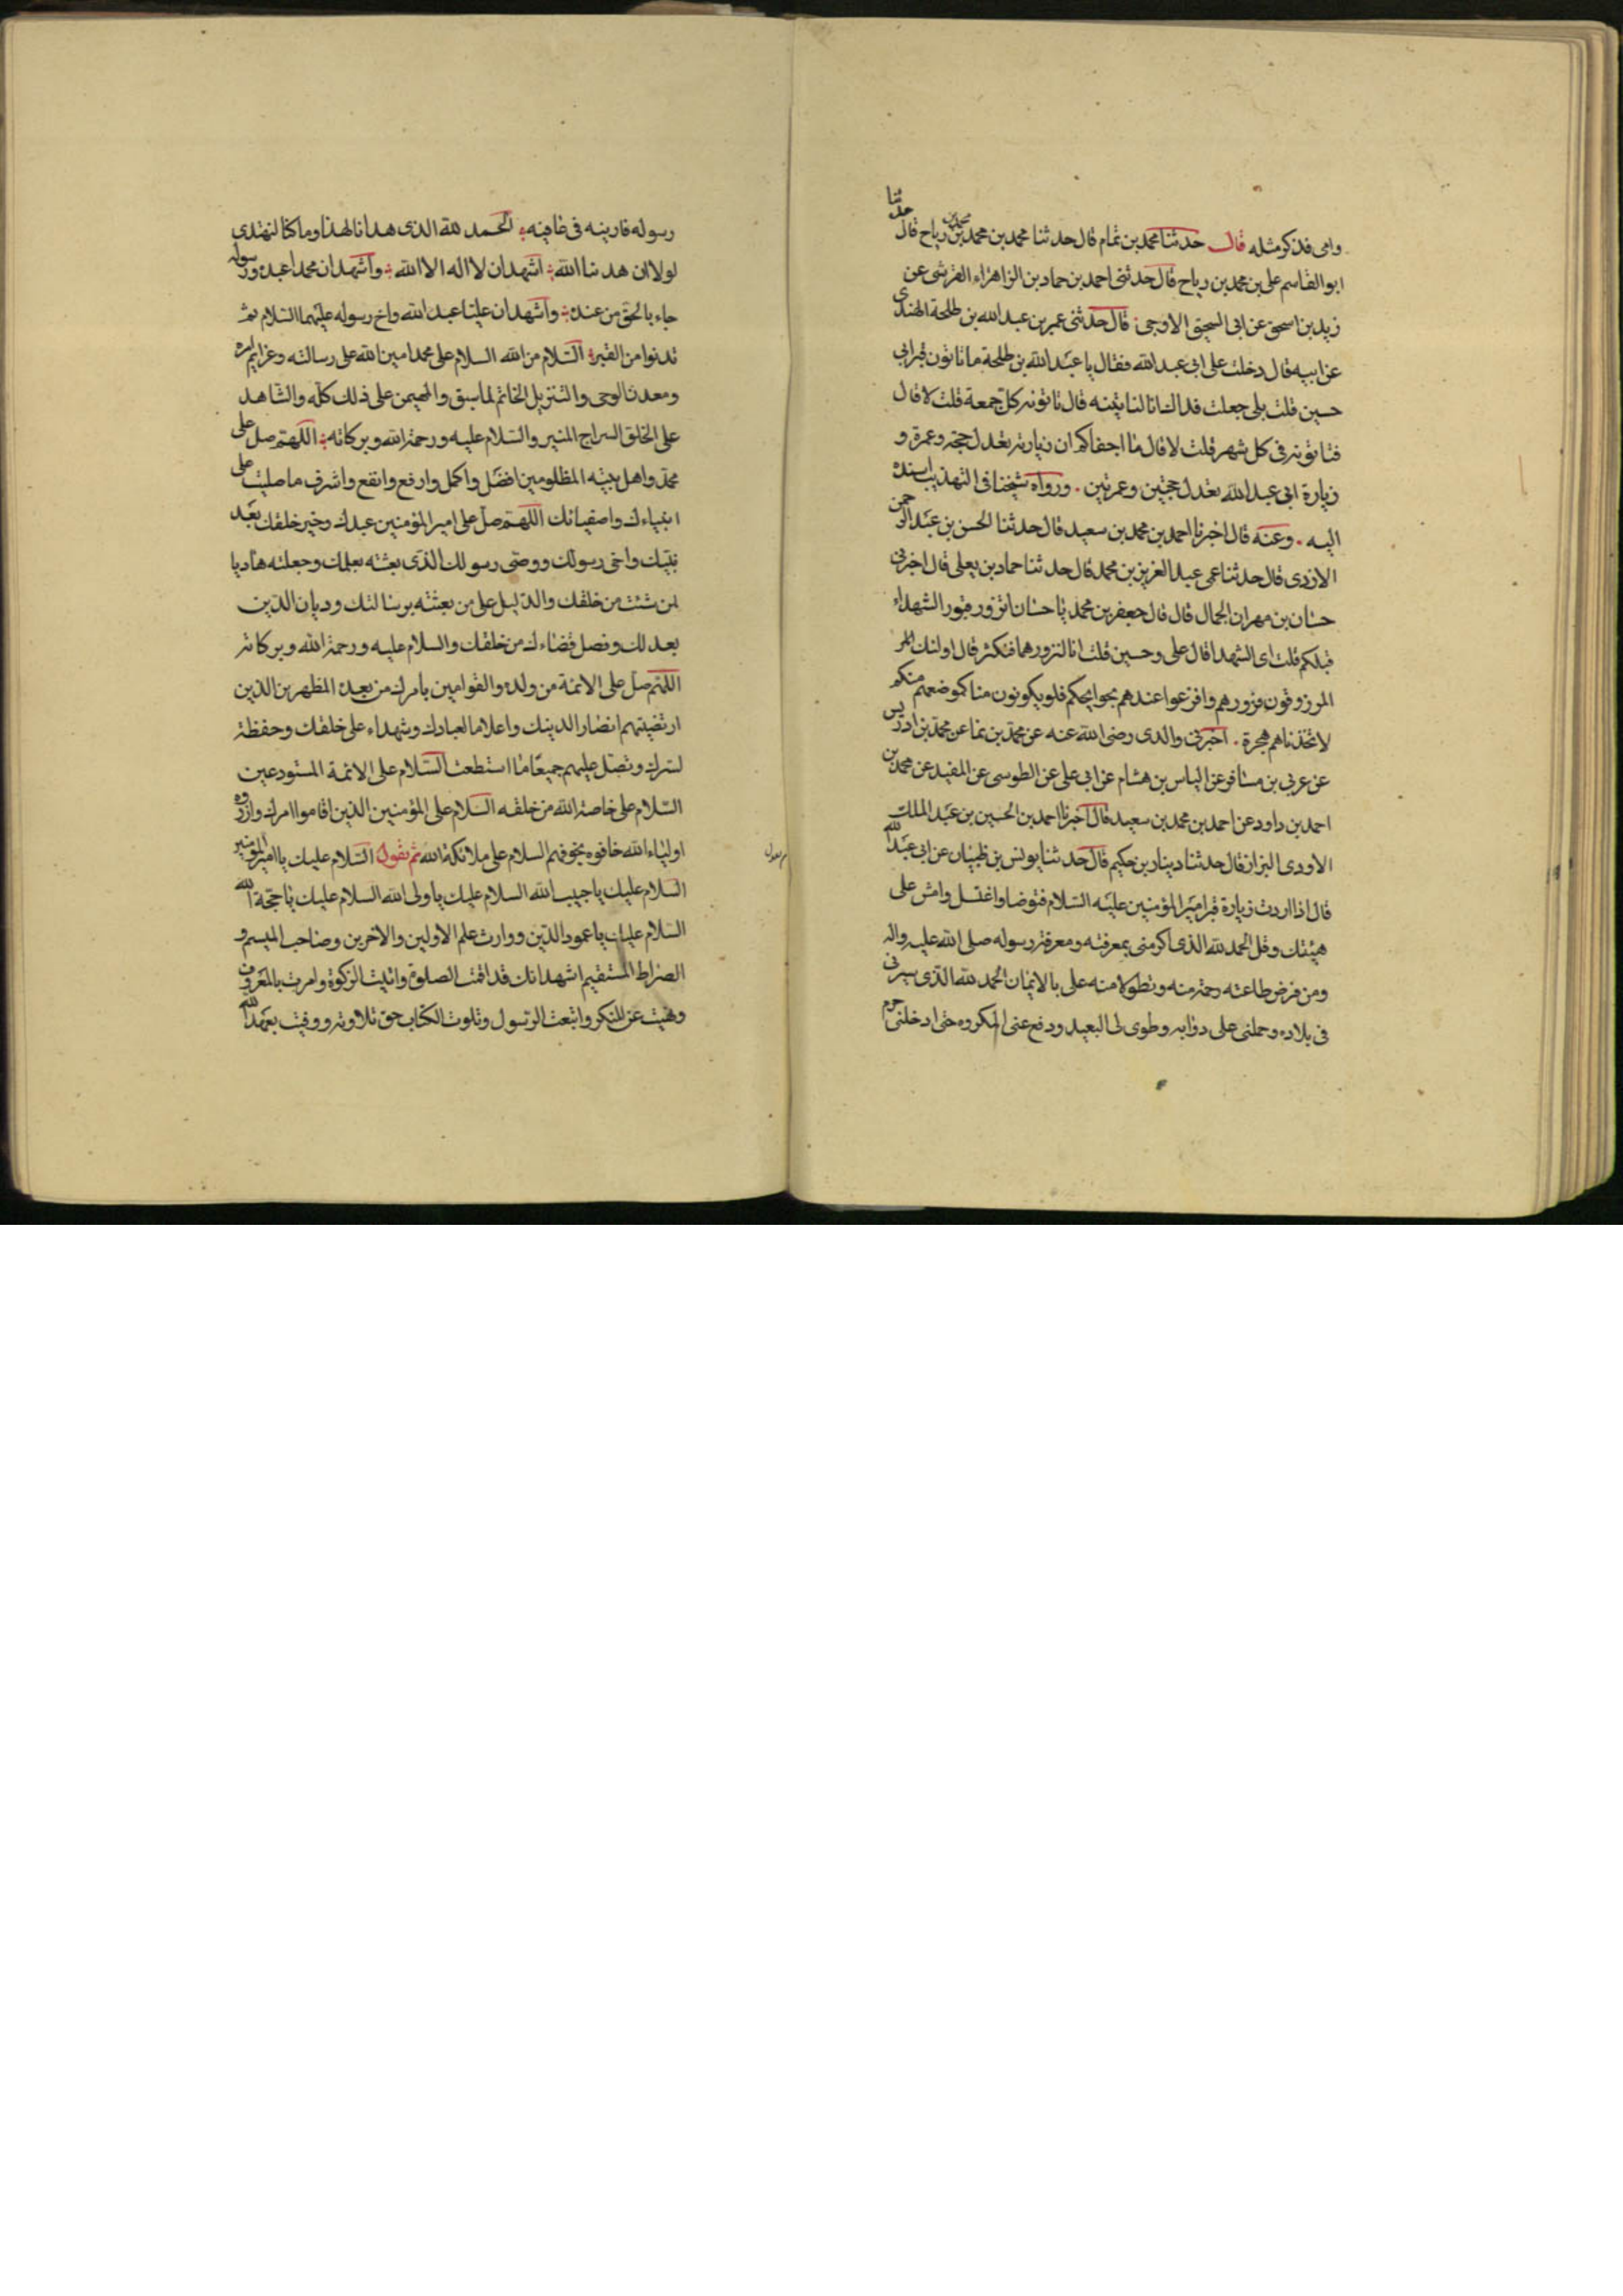 وامى فذكر مثله قال حدثنا محمد بن تمام قال حدثنا محمد بن محمد بن رياح قال حدثنا
ابو القاسم على بن محمد بن رياح قال حدثنى احمد بن حماد بن الزاهراء القرشى عن
زيد بن اسحق عن ابى السحيق الاوجى قال حدثنى عمر بن عبد الله بن طلحة الهندى
عن ابيه قال دخلت على ابى عبد الله فقال يا عبد الله بن طلحة ما تاتون قبر ابى
حسين قلت بلى جعلت فداك انا لناتينه قال تاتونه كل جمعة قلت لا قال
فتاتونه فى كل شهر قلت لا قال ما اجفاكم ان زيارته تعدل حجة وعمرة و
زيارة ابى عبد الله تعدل حجتين وعمرتين . ورواه شيخنا فى التهذيب باسنده
اليه . وعنه قال اخبرنا احمد بن محمد بن سعيد قال حدثنا الحسن بن عبد الرحمن
الازدى قال حدثنا عمى عبد العزيز بن محمد قال حدثنا حماد بن يعلى قال اخبرنى
حسان بن مهران الجمال قال قال جعفر بن محمد يا حسان اتزور قبور الشهداء
قبلكم قلت اى الشهدا قال على وحسين قلت انا لنزورهما فنكثر قال اولئك
المرزوقون فزورهم وافزعوا عندهم بحوايجكم فلو يكونون منا كموضعهم منكم
لاتخذناهم هجرة . اخبرنى والدى رضى الله عنه عن محمد بن نما عن محمد بن ادريس
عن عربى بن مسافر عن الياس بن هشام عن ابى على عن الطوسى عن المفيد عن محمد بن
احمد بن داود عن احمد بن محمد بن سعيد قال اخبرنا احمد بن الحسين بن عبد الملك
الاودى البزاز قال حدثنا دينار بن حكيم قال حدثنا يونس بن ظبيان عن ابى عبد الله
قال اذا اردت زيارة قبر امير المؤمنين عليه السلام فتوضا واغتسل وامش على
هيئتك وقل الحمد لله الذى اكرمنى بمعرفته ومعرفة رسوله صلى الله عليه واله
ومن فرض طاعته رحمة منه وتطولا منه على بالايمان الحمد لله الذى سيرنى
فى بلاده وحملنى على دوابه وطوى لى البعيد ودفع عنى المكروه حتى ادخلنى حرم
رسوله فارينه فى عافيه الحمد لله الذى هدانا لهذا وما كنا لنهتدى
لولا ان هدينا الله اشهد ان لا اله الا الله واشهد ان محمدا عبده ورسوله
جاء بالحق من عنده واشهد ان عليا عبد الله واخ رسوله عليهما السلام ثم
تدنوا من القبر السلام من الله السلام على محمد امين الله على رسالته وعزايم امره
ومعدن الوحى والتنزيل الخاتم لما سبق والمهيمن على ذلك كله والشاهد
على الخلق السراج المنير والسلام عليه ورحمة الله وبركاته اللهم صل على
محمد واهل بيته المظلومين افضل واكمل وارفع وانفع واشرف ما صليت على
انبياءك واصفيائك اللهم صل على امير المؤمنين عبدك وخير خلقك بعد
نبيك واخى رسولك ووصى رسولك الذى بعثته بعلمك وجعلته هاديا
لمن شئت من خلقك والدليل على من بعثته برسالتك وديان الدين
بعدلك وفصل قضاءك من خلقك والسلام عليه ورحمة الله وبركاته
اللهم صل على الائمة من ولده والقوامين بامرك من بعده المطهرين الذين
ارتضيتهم انصارا لدينك واعلاما لعبادك وشهداء على خلقك وحفظة
لسرك وتصل عليهم جميعا ما استطعت السلام على الائمة المستودعين
السلام على خاصة الله من خلقه السلام على المؤمنين الذين اقاموا امرك وازروه
اولياء الله خافوه بخوفهم السلام على ملائكة الله ثم تقول السلام عليك يا امير المؤمنين
السلام عليك يا حبيب الله السلام عليك يا ولى الله السلام عليك يا حجة الله
السلام عليك يا عمود الدين ووارث علم الاولين والاخرين وصاحب الميسم و
الصراط المستقيم اشهد انك قد اقمت الصلوة واتيت الزكوة وامرت بالمعروف
ونهيت عن المنكر واتبعت الرسول وتلوت الكتاب حق تلاوته ووفيت بعهد الله